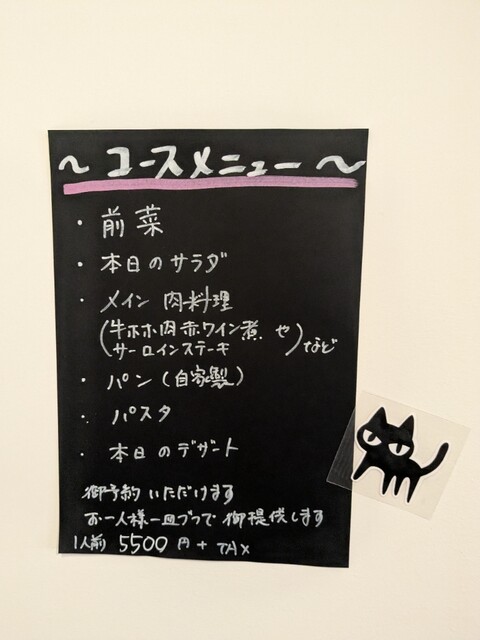 ～コースメニュー～
・前菜
・本日のサラダ
・メイン 肉料理
(牛ホホ肉赤ワイン煮 や
サーロインステーキ) など
・パン(自家製)
・パスタ
・本日のデザート
御予約いただけます
お一人様一皿づつで御提供します
1人前 5500円+TAX